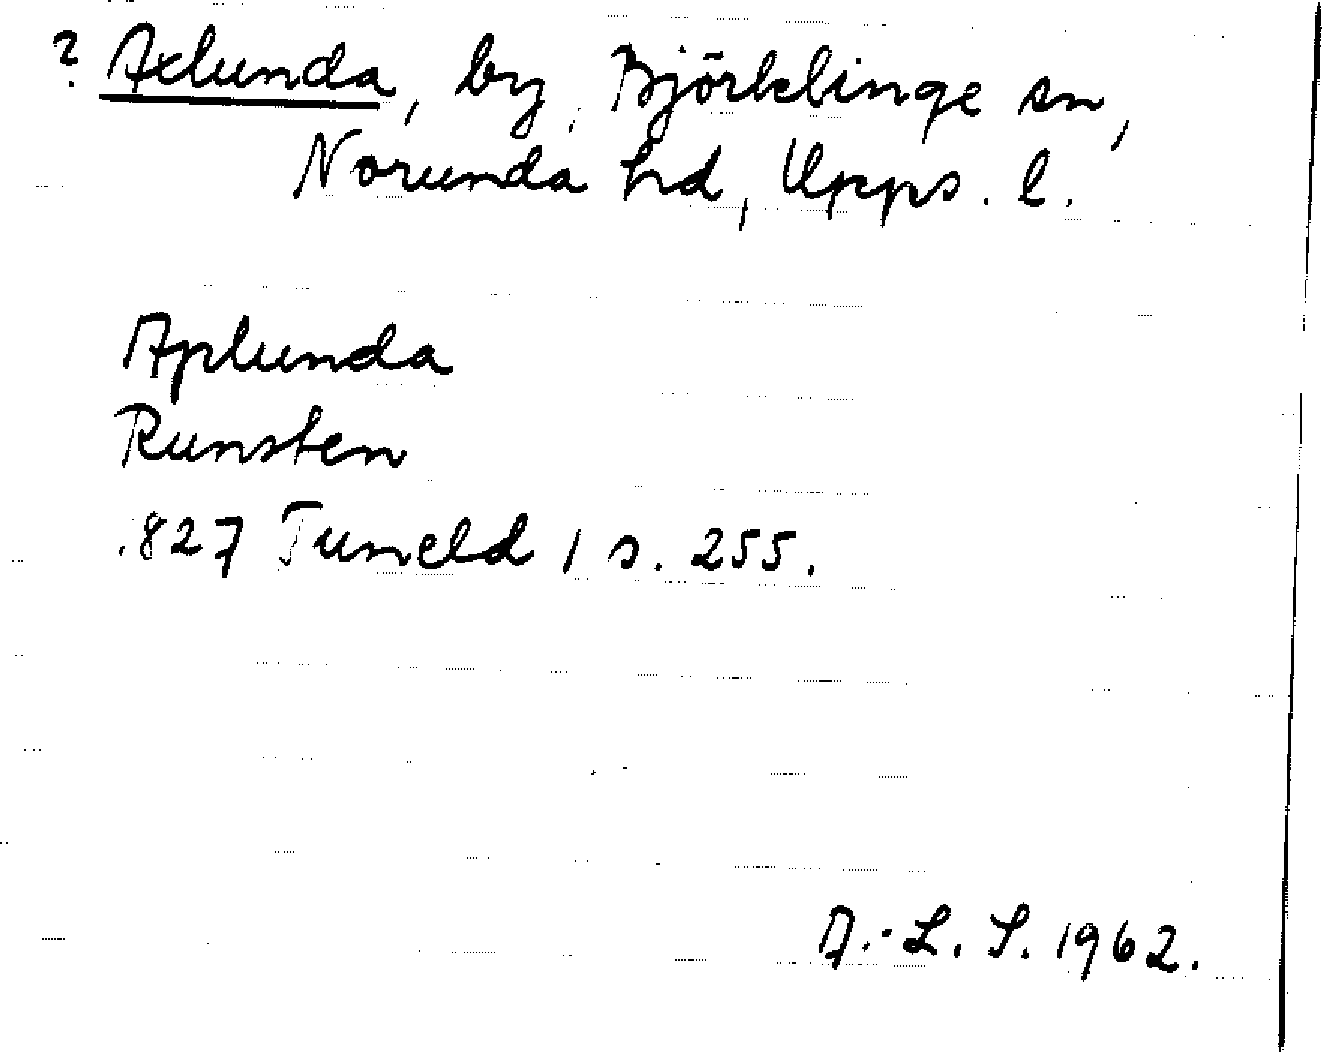 ? Axlunda, by, Björklinge sn,
Norunda hd, Upps. l.
Aplunda
Runsten
.827 Tuneld 1 s. 255.
A.-L. S. 1962.